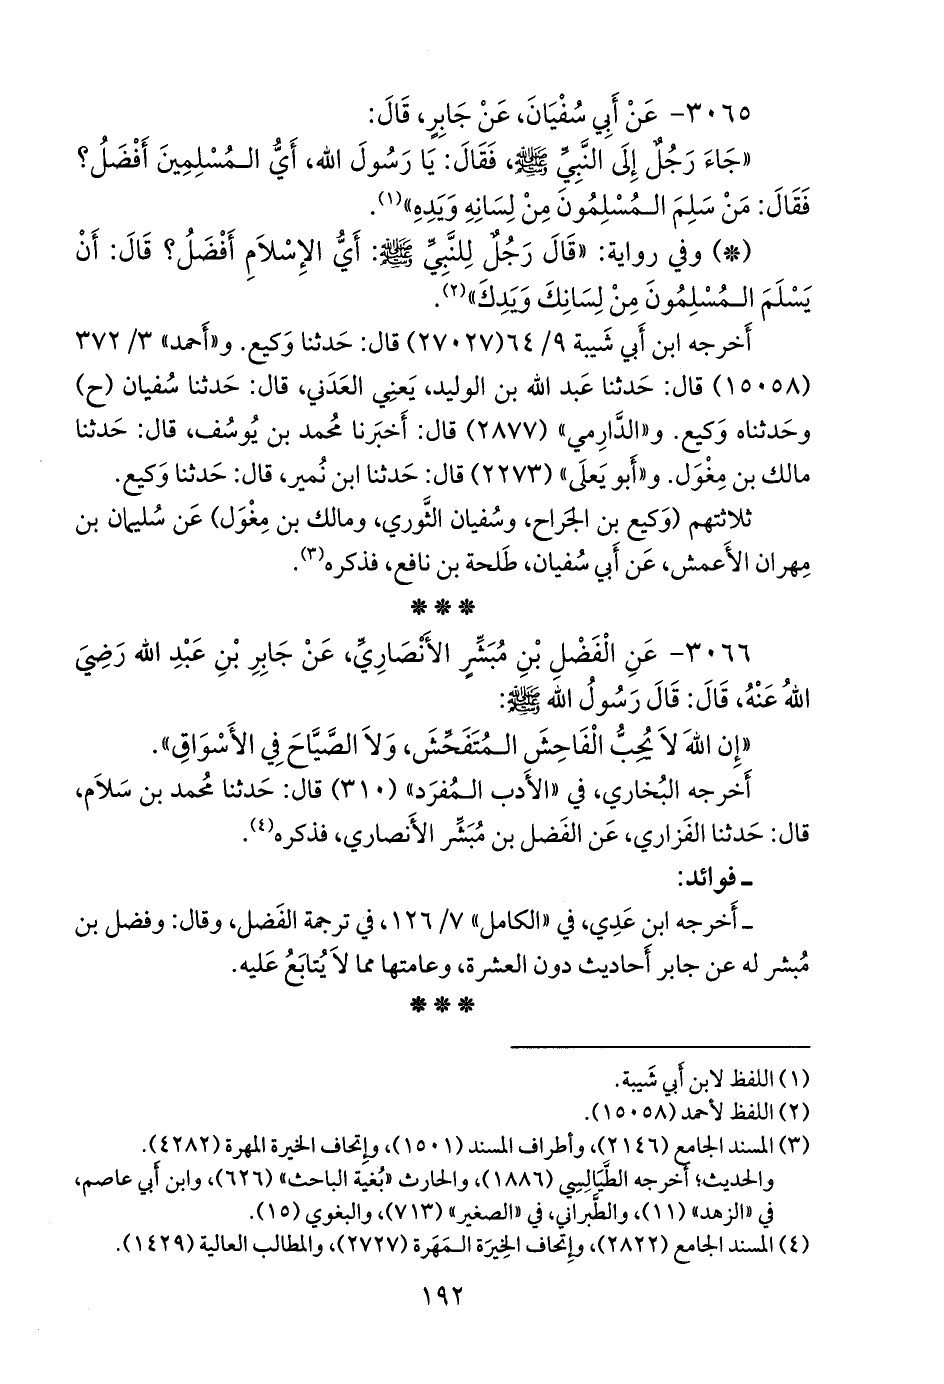 ٣٠٦٥- عَنْ أَبِي سُفْيَانَ، عَنْ جَابِرٍ، قَالَ:
«جَاءَ رَجُلٌ إِلَى النَّبِيِّ ﷺ، فَقَالَ: يَا رَسُولَ الله، أَيُّ الـمُسْلِمِينَ أَفْضَلُ؟
فَقَالَ: مَنْ سَلِمَ الـمُسْلِمُونَ مِنْ لِسَانِهِ وَيَدِهِ»(١).
(*) وفي رواية: «قَالَ رَجُلٌ لِلنَّبِيِّ ﷺ: أَيُّ الإِسْلَامِ أَفْضَلُ؟ قَالَ: أَنْ
يَسْلَمَ الـمُسْلِمُونَ مِنْ لِسَانِكَ وَيَدِكَ»(٢).
أَخرجه ابن أَبي شَيبة ٩/ ٦٤(٢٧٠٢٧) قال: حَدثنا وَكيع. و«أَحمد» ٣/ ٣٧٢
(١٥٠٥٨) قال: حَدثنا عَبد الله بن الوليد، يَعنِي العَدَني، قال: حَدثنا سُفيان (ح)
وحَدثناه وَكيع. و«الدَّارِمي» (٢٨٧٧) قال: أَخبَرنا مُحمد بن يُوسُف، قال: حَدثنا
مالك بن مِغْوَل. و«أَبو يَعلَى» (٢٢٧٣) قال: حَدثنا ابن نُمير، قال: حَدثنا وَكيع.
ثلاثتهم (وَكيع بن الجَراح، وسُفيان الثَّوري، ومالك بن مِغْوَل) عَن سُليمان بن
مِهران الأَعمش، عَن أَبي سُفيان، طَلحة بن نافع، فذكره(٣).
* * *
٣٠٦٦- عَنِ الْفَضْلِ بْنِ مُبَشِّرٍ الأَنْصَارِيِّ، عَنْ جَابِرِ بْنِ عَبْدِ الله رَضِيَ
اللهُ عَنْهُ، قَالَ: قَالَ رَسُولُ الله ﷺ:
«إِن اللهَ لاَ يُحِبُّ الْفَاحِشَ الـمُتَفَحِّشَ، وَلاَ الصَّيَّاحَ فِي الأَسْوَاقِ».
أَخرجه البُخاري، في «الأَدب الـمُفرَد» (٣١٠) قال: حَدثنا مُحمد بن سَلاَم،
قال: حَدثنا الفَزاري، عَن الفَضل بن مُبَشِّر الأَنصاري، فذكره(٤).
ـ فوائد:
ـ أَخرجه ابن عَدِي، في «الكامل» ٧/ ١٢٦، في ترجمة الفَضل، وقال: وفضل بن
مُبشر له عن جابر أَحاديث دون العشرة، وعامتها مما لاَ يُتابَعُ عَليه.
* * *
(١) اللفظ لابن أَبي شَيبة.
(٢) اللفظ لأَحمد (١٥٠٥٨).
(٣) المسند الجامع (٢١٤٦)، وأطراف المسند (١٥٠١)، وإتحاف الخيرة المهرة (٤٢٨٢).
والحديث؛ أخرجه الطَّيَالِسِي (١٨٨٦)، والحارث «بُغية الباحث» (٦٢٦)، وابن أَبي عاصم،
في «الزهد» (١١)، والطَّبراني، في «الصغير» (٧١٣)، والبغوي (١٥).
(٤) المسند الجامع (٢٨٢٢)، وإِتحاف الخِيرَة الـمَهَرة (٢٧٢٧)، والمطالب العالية (١٤٢٩).
١٩٢